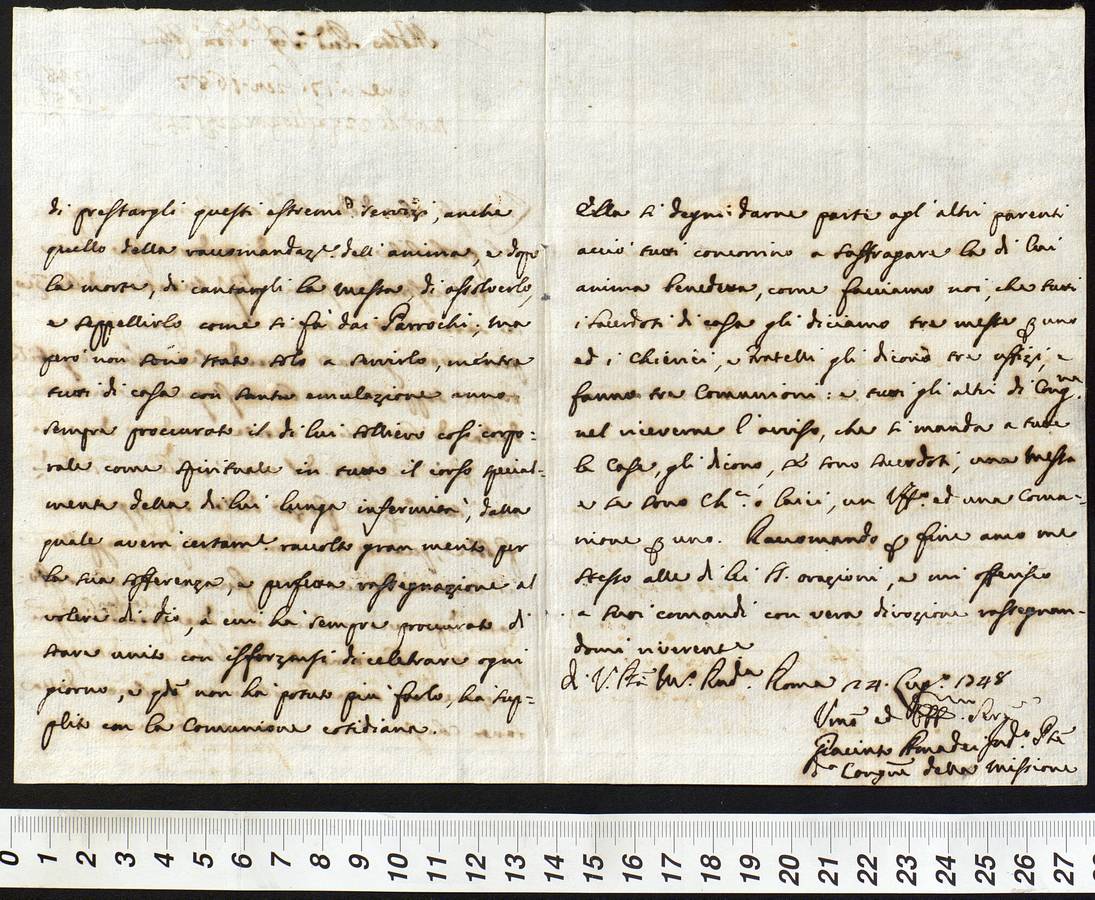 di prestargli questi estremi servizj, anche
quello della raccomandaz.e dell'anima, e dopo
la morte, di cantargli la messa, di assolverlo,
e seppellirlo come si fà dai Parrochi; ma
però non sono stato solo a servirlo, mentre
tutti di casa con santa emulazione anno
sempre proccurato il di lui sollievo così corpo:
rale come spirituale in tutto il corso special-
mente della di lui lunga infermità, dalla
quale averà certam.e raccolto gran merito per
la sua sofferenza, e perfetta rassegnazione al
volere di Dio, à cui hà sempre proccurato di
stare unito con isforzarsi di celebrare ogni
giorno, e q.do non hà potuto più farlo, hà sup-
plito con la Comunione cotidiana.
Ella si degni darne parte agl'altri parenti
acciò tutti concorrino a suffragare la di lui
anima benedetta, come facciamo noi, che tutti
i Sacerdoti di casa gli diciamo tre messe p uno
ed i Chierici, e Fratelli gli dicono tre uffizi, e
fanno tre Comunioni: e tutti gli altri di Cong.na
nel riceverne l'avviso, che si manda a tutte
le Case, gli dicono, se sono sacerdoti, una messa
e se sono Ch.ci o laici, un Uff.o ed una Comu-
nione p uno. Raccomando p fine anco me
stesso alle di lei SS. orazioni, e mi offerisco
a suoi comandi con vera divozione rassegnan-
domi riverente
di V. Rta M.o Rnda. Roma 24. Lug.o 1748
Umo ed Serv.
Giacinto Amadei Ind.o Pte
d.a Congne della Missione
0 1 2 3 4 5 6 7 8 9 10 11 12 13 14 15 16 17 18 19 20 21 22 23 24 25 26 27